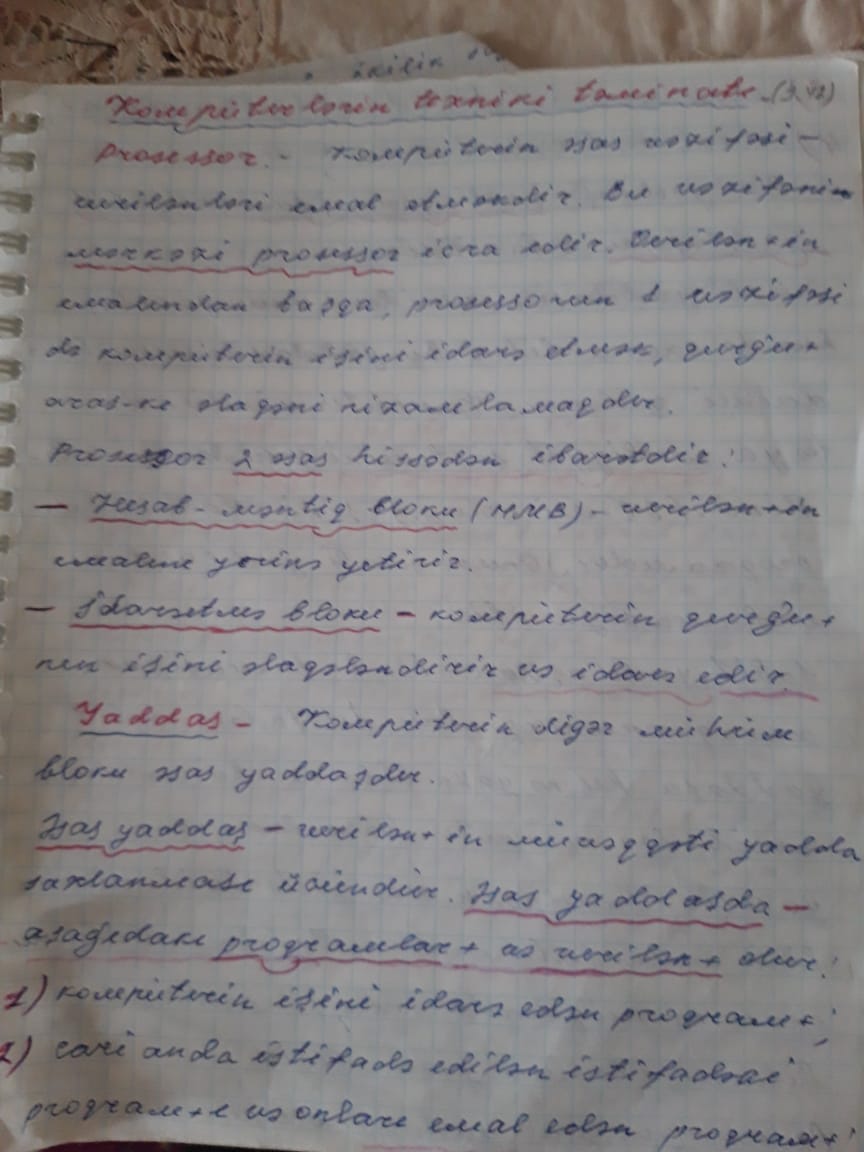 ikilik
Kompüterlərin texniki təminatı.
Prosessor. - Kompüterin əsas vəzifəsi -
verilənləri emal etməkdir. Bu vəzifəni
mərkəzi prosessor icra edir. Verilən+in
emalından başqa, prosessorun 1 vəzifəsi
də kompüterin işini idarə etmək, qurğu+
aras-kı əlaqəni nizamlamaqdır.
Prosessor 2 əsas hissədən ibarətdir:
— Hesab-məntiq bloku (HMB) - verilən+in
emalını yerinə yetirir.
— İdarəetmə bloku - kompüterin qurğu+
nın işini əlaqələndirir və idarə edir.
Yaddaş - Kompüterin digər mühüm
bloku əsas yaddaşdır.
Əsas yaddaş - verilən+in müvəqqəti yadda
saxlanması üçündür. Əsas yaddaşda -
aşağıdakı proqramlar+ və verilən+ olur:
1) kompüterin işini idarə edən proqram+;
2) cari anda istifadə edilən istifadəçi
proqram+ı və onları emal edən proqram+;